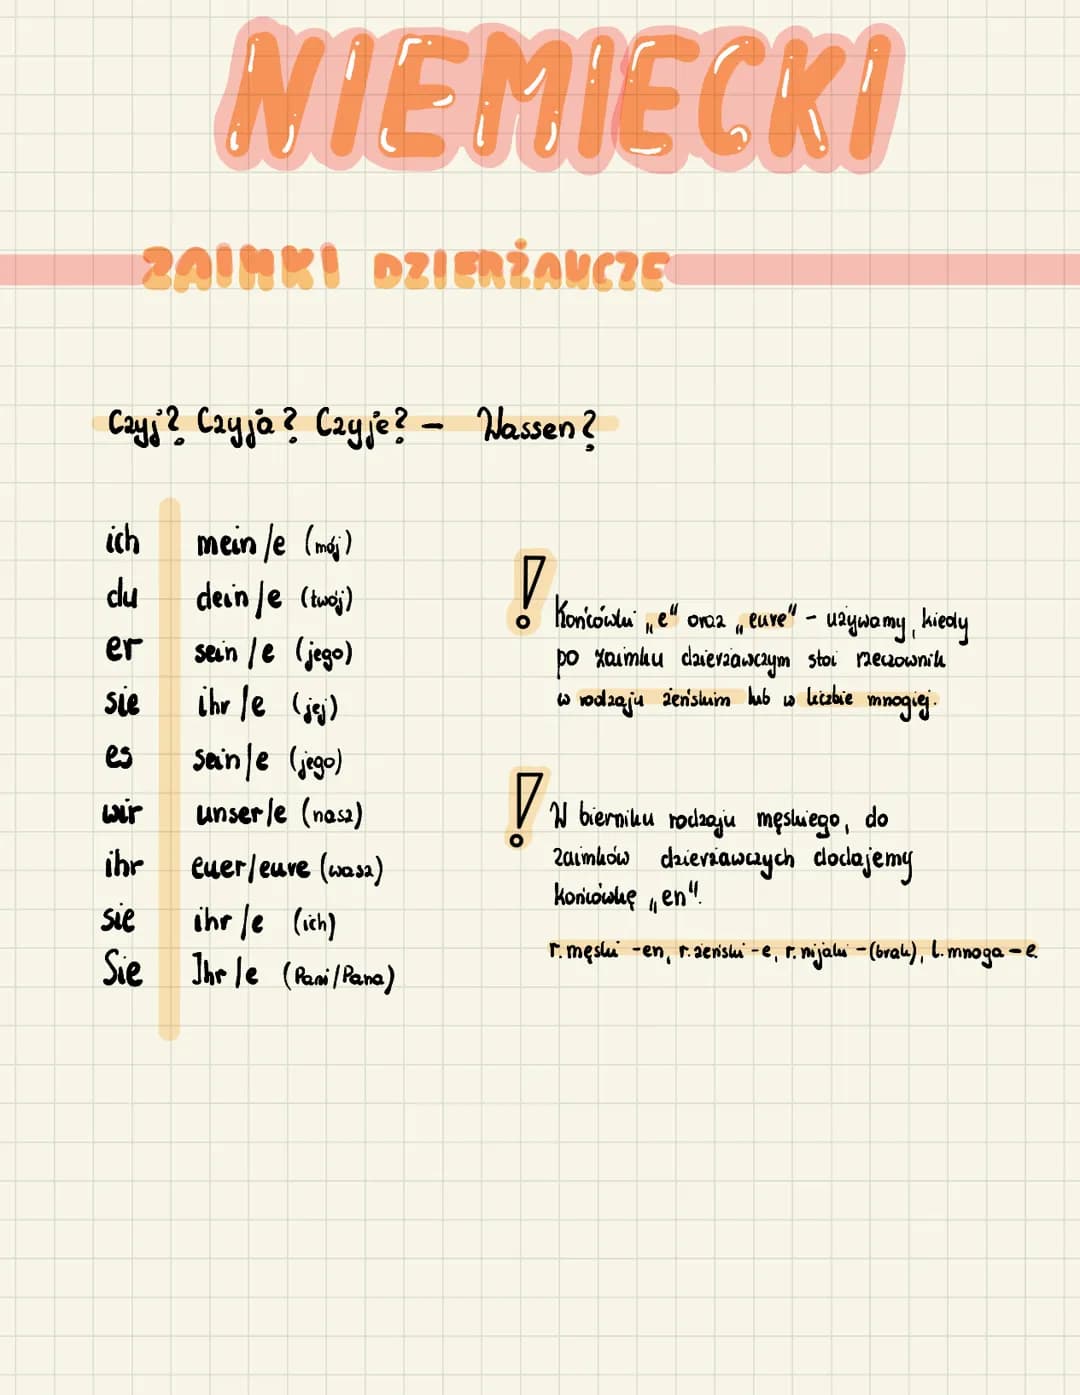 NIEMIECKI
ZAIMKI DZIERŻAWCZE
Czyj? Czyja? Czyje? – Wassen?
ich mein/e (mój)
du dein/e (twój)
er sein/e (jego)
sie ihr/e (jej)
es sein/e (jego)
wir unser/e (nasz)
ihr euer/eure (wasz)
sie ihr/e (ich)
Sie Ihr/e (Pani/Pana)
! Końcówki „e" oraz „eure" – używamy, kiedy
po zaimku dzierżawczym stoi rzeczownik
w rodzaju żeńskim lub w liczbie mnogiej.
! W bierniku rodzaju męskiego, do
zaimków dzierżawczych dodajemy
końcówkę „en".
r. męski -en, r. żeński -e, r. nijaki -(brak), l. mnoga -e.